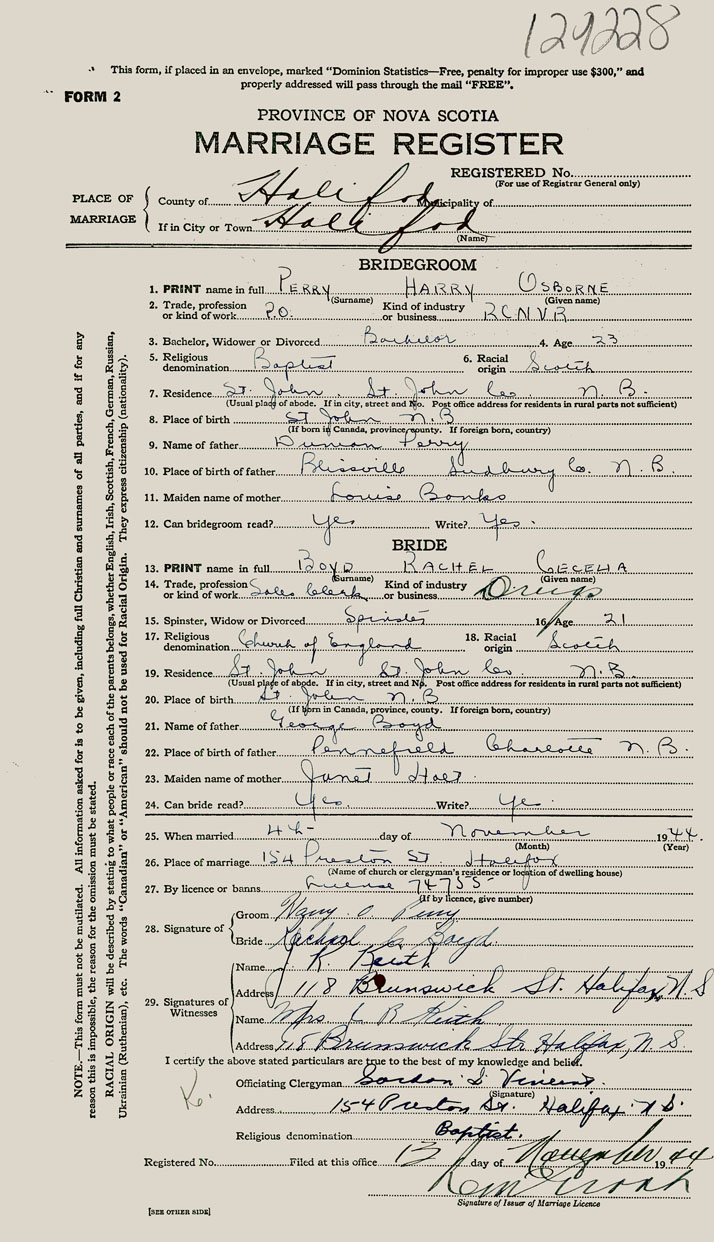 129228
This form, if placed in an envelope, marked "Dominion Statistics—Free, penalty for improper use $300," and
properly addressed will pass through the mail "FREE".
FORM 2
PROVINCE OF NOVA SCOTIA
MARRIAGE REGISTER
REGISTERED No.
(For use of Registrar General only)
PLACE OF MARRIAGE
County of Halifax Municipality of
If in City or Town Halifax
(Name)
BRIDEGROOM
1. PRINT name in full PERRY HARRY OSBORNE
(Surname) (Given name)
2. Trade, profession or kind of work P.O. Kind of industry or business RCNVR
3. Bachelor, Widower or Divorced Bachelor 4. Age 23
5. Religious denomination Baptist 6. Racial origin Scotch
7. Residence St. John, St. John Co. N.B.
(Usual place of abode. If in city, street and No. Post office address for residents in rural parts not sufficient)
8. Place of birth St John N.B
(If born in Canada, province, county. If foreign born, country)
9. Name of father Perry
10. Place of birth of father Blissville Sudbury Co. N.B.
11. Maiden name of mother Louise Banks
12. Can bridegroom read? Yes Write? Yes.
BRIDE
13. PRINT name in full BOYD RACHEL CECELIA
(Surname) (Given name)
14. Trade, profession or kind of work Sales Clerk Kind of industry or business Drugs
15. Spinster, Widow or Divorced Spinster 16. Age 21
17. Religious denomination Church of England 18. Racial origin Scotch
19. Residence St. John St. John Co. N.B.
(Usual place of abode. If in city, street and No. Post office address for residents in rural parts not sufficient)
20. Place of birth St. John N.B
(If born in Canada, province, county. If foreign born, country)
21. Name of father George Boyd
22. Place of birth of father Pennefield Charlotte N.B.
23. Maiden name of mother Janet
24. Can bride read? Yes. Write? Yes.
25. When married 4th day of November 1944.
(Month) (Year)
26. Place of marriage 154 Preston St. Halifax
(Name of church or clergyman's residence or location of dwelling house)
27. By licence or banns License 74755
(If by licence, give number)
28. Signature of
Groom Harry O. Perry
Bride Rachel C. Boyd.
29. Signatures of Witnesses
Name R Keith
Address 118 Brunswick St. Halifax, N S
Name Mrs. L B Keith
Address 118 Brunswick Str Halifax, N. S.
I certify the above stated particulars are true to the best of my knowledge and belief.
Officiating Clergyman Gordon D Vincent.
(Signature)
Address 154 Preston St. Halifax. N S.
Religious denomination Baptist.
Registered No. Filed at this office 13 day of November 1944
Signature of Issuer of Marriage Licence
[SEE OTHER SIDE]
NOTE.—This form must not be mutilated. All information asked for is to be given, including full Christian and surnames of all parties, and if for any
reason this is impossible, the reason for the omission must be stated.
RACIAL ORIGIN will be described by stating to what people or race each of the parents belongs, whether English, Irish, Scottish, French, German, Russian,
Ukrainian (Ruthenian), etc. The words "Canadian" or "American" should not be used for Racial Origin. They express citizenship (nationality).